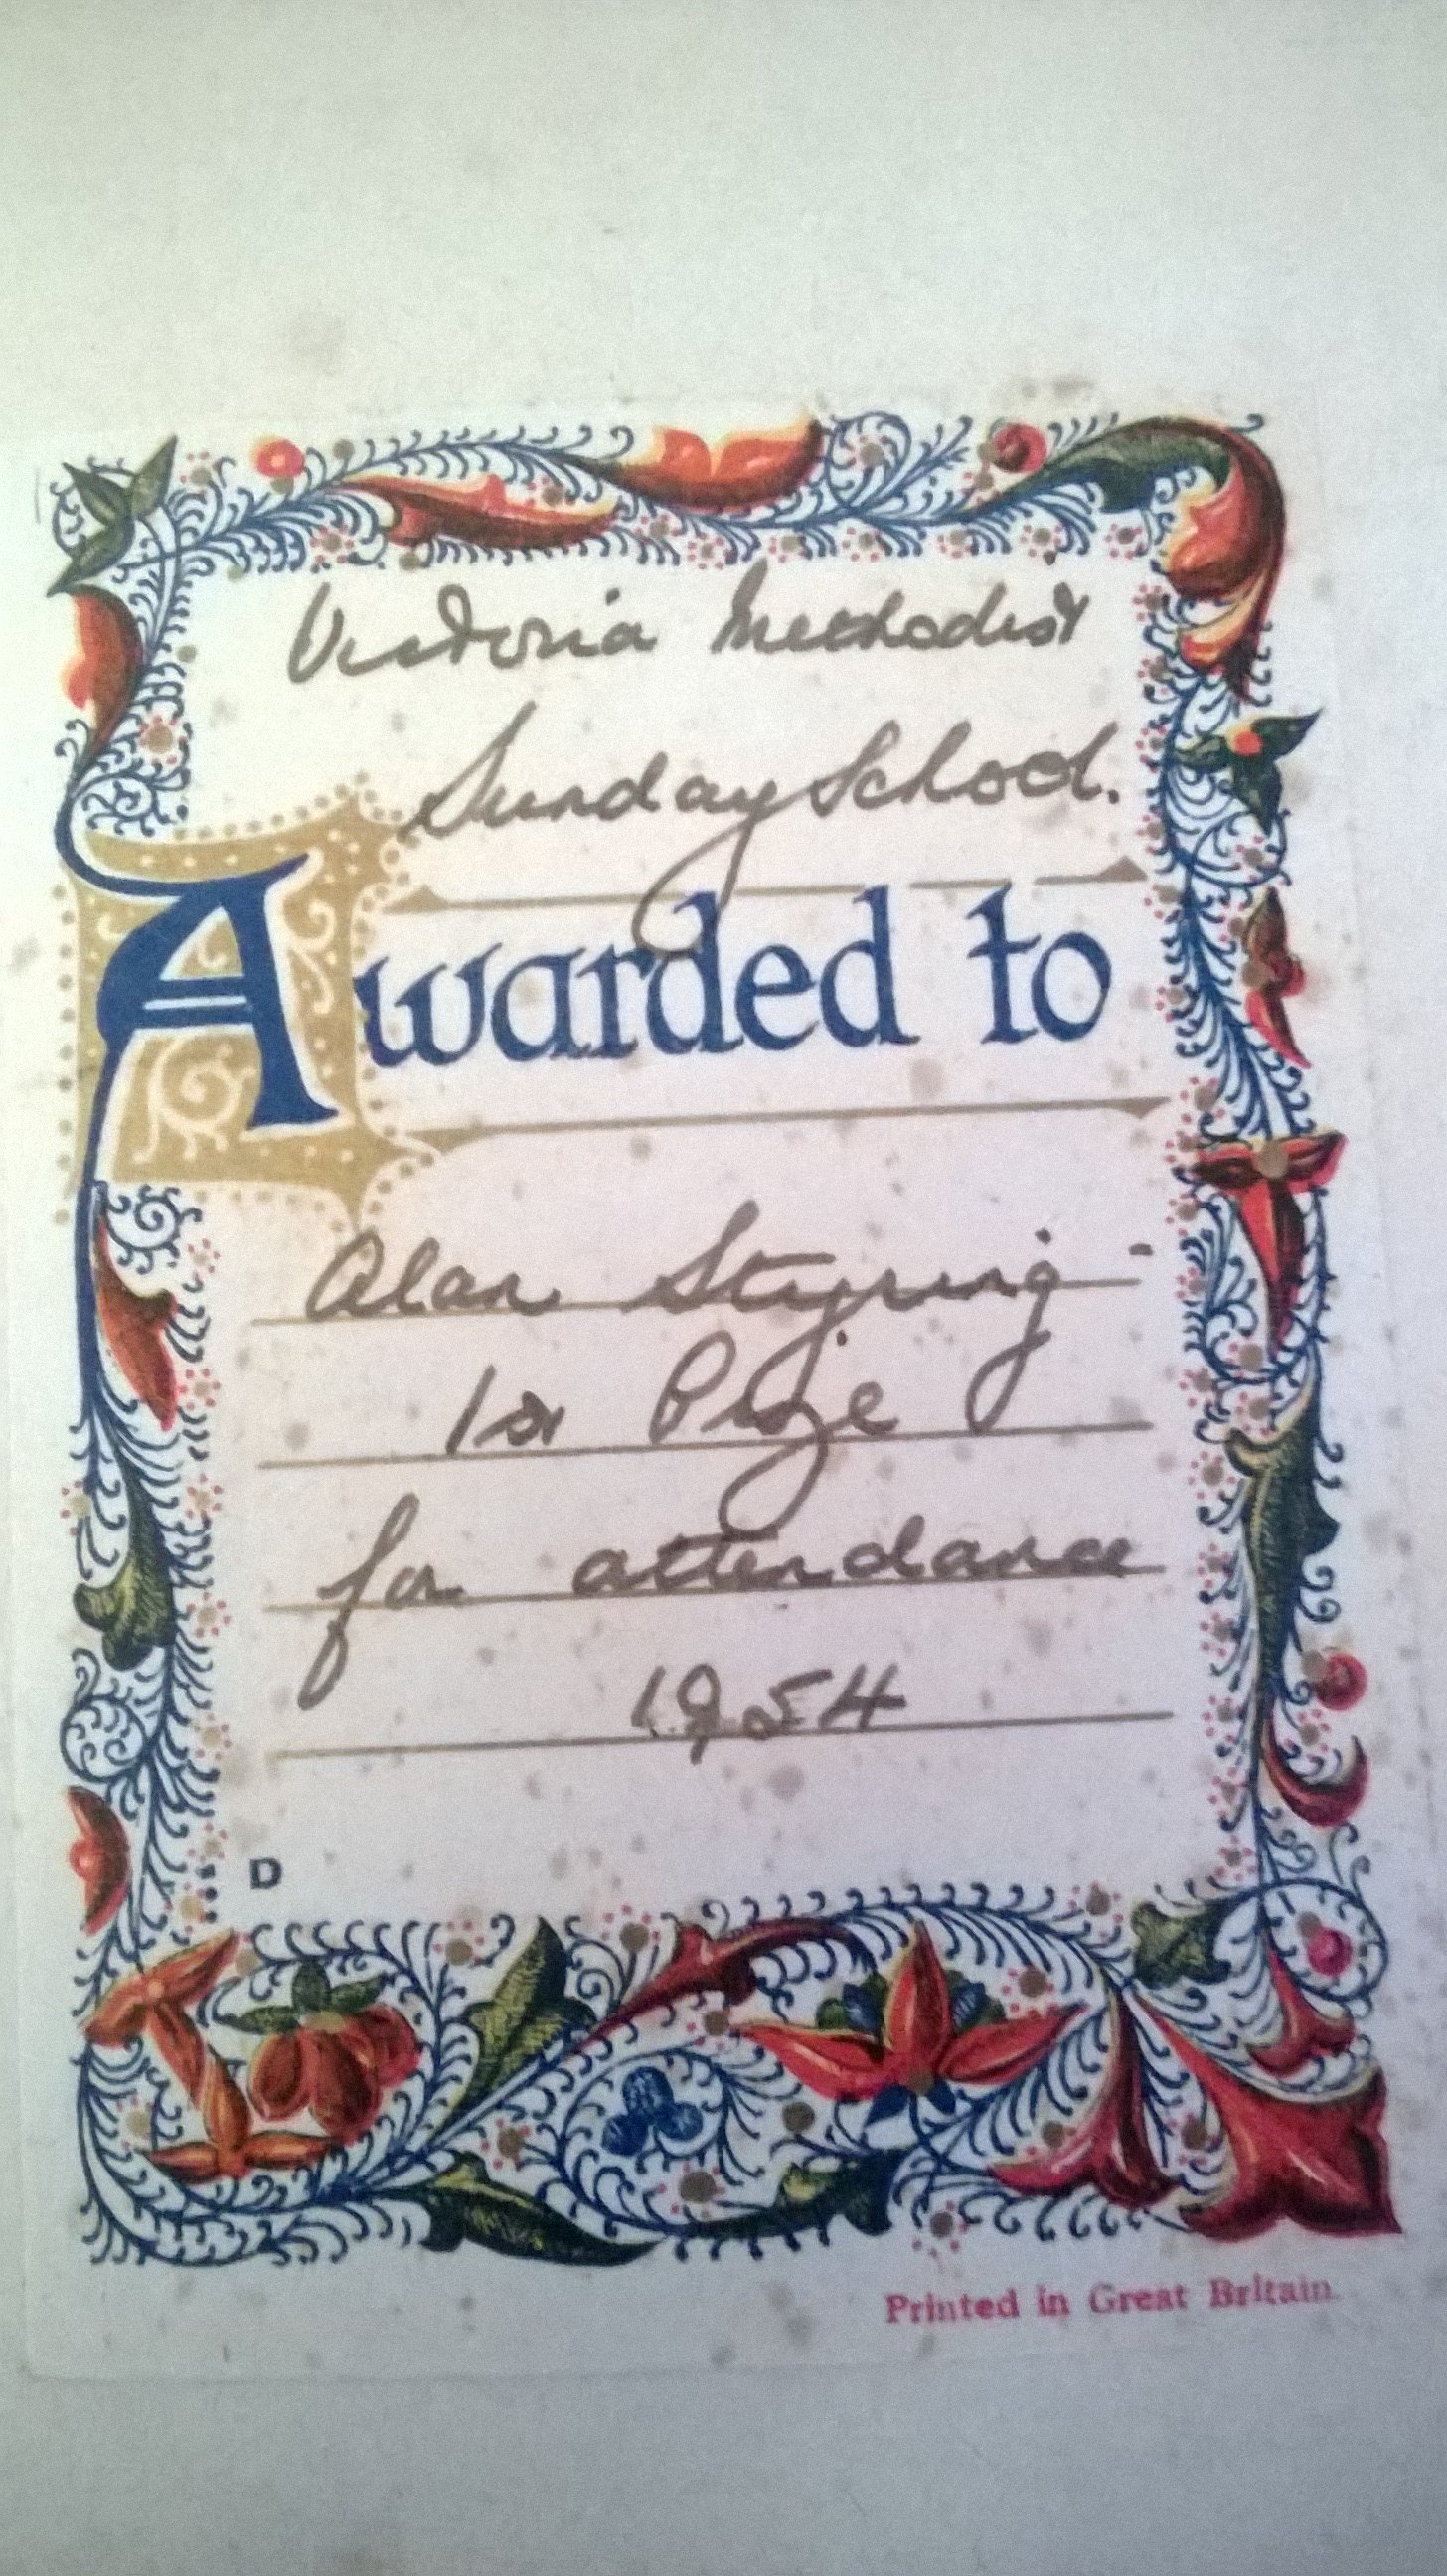 Victoria Methodist
Sunday School.
Awarded to
Alan Styring -
1st Prize
for attendance
1954
D
Printed in Great Britain.